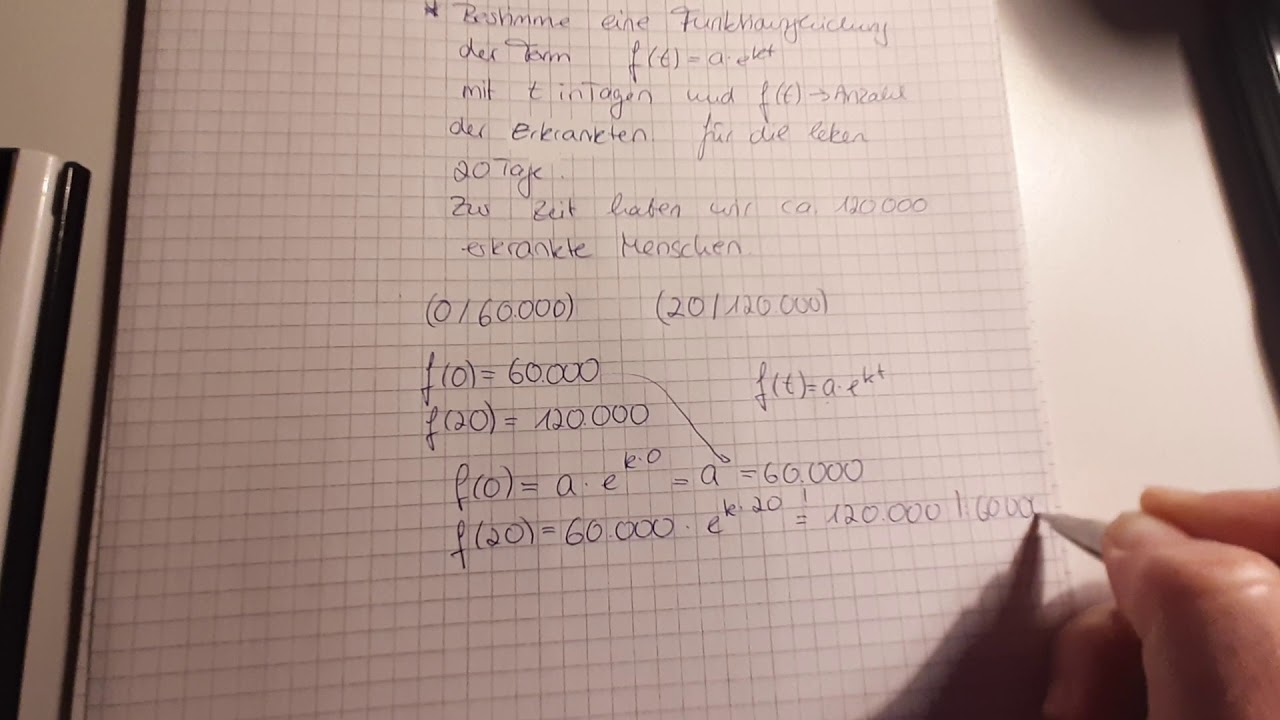 * Bestimme eine Funktionsgleichung
der Form f(t) = a·e^kt
mit t in Tagen und f(t) → Anzahl
der Erkrankten für die letzten
20 Tage.
Zur Zeit haben wir ca. 120 000
erkrankte Menschen.
(0/60.000) (20/120.000)
f(0) = 60.000
f(t) = a·e^kt
f(20) = 120.000
f(0) = a · e^k·0 = a = 60.000
f(20) = 60.000 · e^k·20 =! 120.000 |:6000